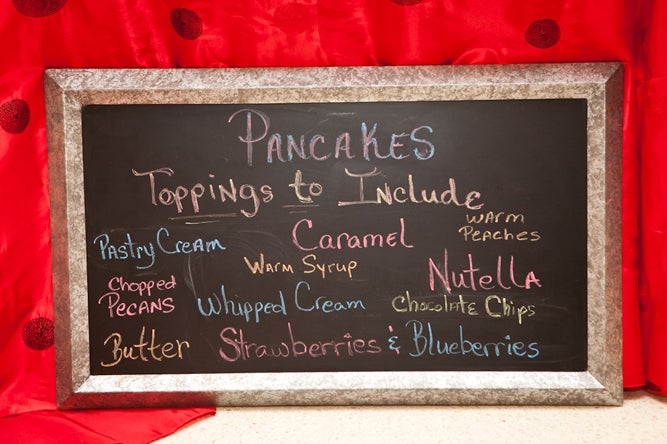 PANCAKES
Toppings to Include
Pastry Cream
Caramel
Warm
Peaches
Warm Syrup
Chopped
Pecans
Whipped Cream
Nutella
Chocolate Chips
Butter
Strawberries & Blueberries